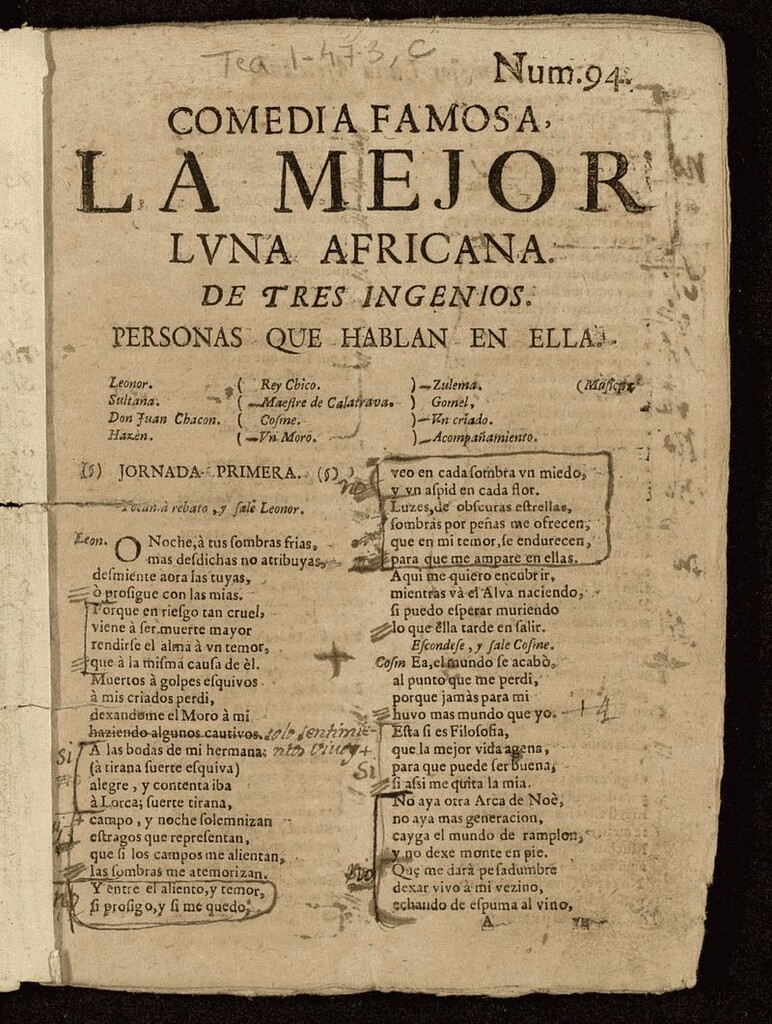 Tea 1-473, C
Num. 94.
COMEDIA FAMOSA,
LA MEJOR
LVNA AFRICANA.
DE TRES INGENIOS.
PERSONAS QUE HABLAN EN ELLA.
Leonor. ( Rey Chico. )—Zulema. (Musicos
Sultana. (—Maestre de Calatrava. ) Gomel,
Don Juan Chacon. ( Cosme. )—Vn criado.
Hazèn. (—Vn Moro. )—Acompañamiento.
(§) JORNADA PRIMERA. (§)
Tocan à rebato, y sale Leonor.
Leon. O Noche, à tus sombras frias,
mas desdichas no atribuyas,
desmiente aora las tuyas,
ò prosigue con las mias.
Porque en riesgo tan cruel,
viene à ser muerte mayor
rendirse el alma à vn temor,
que à la misma causa de èl.
Muertos à golpes esquivos
à mis criados perdi,
dexandome el Moro à mi
haziendo algunos cautivos. solo sentimie-
A las bodas de mi hermana; ntos
Si
(à tirana suerte esquiva)
alegre, y contenta iba
à Lorca; suerte tirana,
campo, y noche solemnizan
estragos que representan,
que si los campos me alientan,
las sombras me atemorizan.
Y entre el aliento, y temor,
si prosigo, y si me quedo,
no
veo en cada sombra vn miedo,
y vn aspid en cada flor.
no
Luzes, de obscuras estrellas,
sombras por peñas me ofrecen,
que en mi temor, se endurecen,
para que me ampare en ellas.
Aqui me quiero encubrir,
mientras và el Alva naciendo,
si puedo esperar muriendo
lo que ella tarde en salir.
Escondese, y sale Cosme.
Cosm Ea, el mundo se acabò,
al punto que me perdi,
porque jamàs para mi
huvo mas mundo que yo.
Esta si es Filosofia,
que la mejor vida agena,
para que puede ser buena,
Si
si assi me quita la mia.
No aya otra Arca de Noè,
no aya mas generacion,
cayga el mundo de ramplon,
y no dexe monte en pie.
Que me darà pesadumbre
no
dexar vivo à mi vezino,
echando de espuma al vino,
A